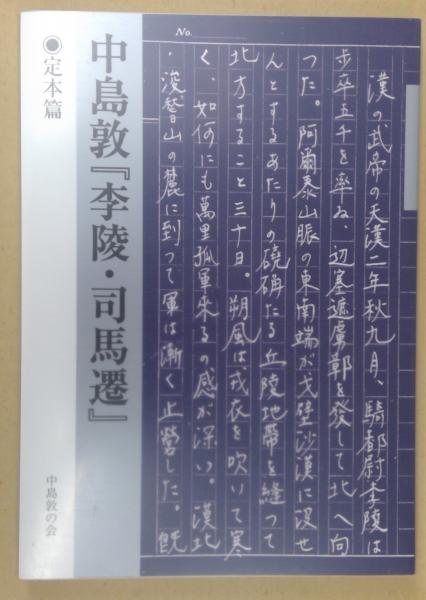 No.
漢の武帝の天漢二年秋九月、騎都尉李陵は
歩卒五千を率ゐ、辺塞遮虜鄣を発して北へ向
つた。阿爾泰山脈の東南端が戈壁沙漠に没せ
んとするあたりの磽确たる丘陵地帯を縫つて
北方すること三十日。朔風は戎衣を吹いて寒
く、如何にも萬里孤軍來るの感が深い。漠北
・浚稽山の麓に到つて軍は漸く止營した。既
中島敦『李陵・司馬遷』
◉定本篇
中島敦の会